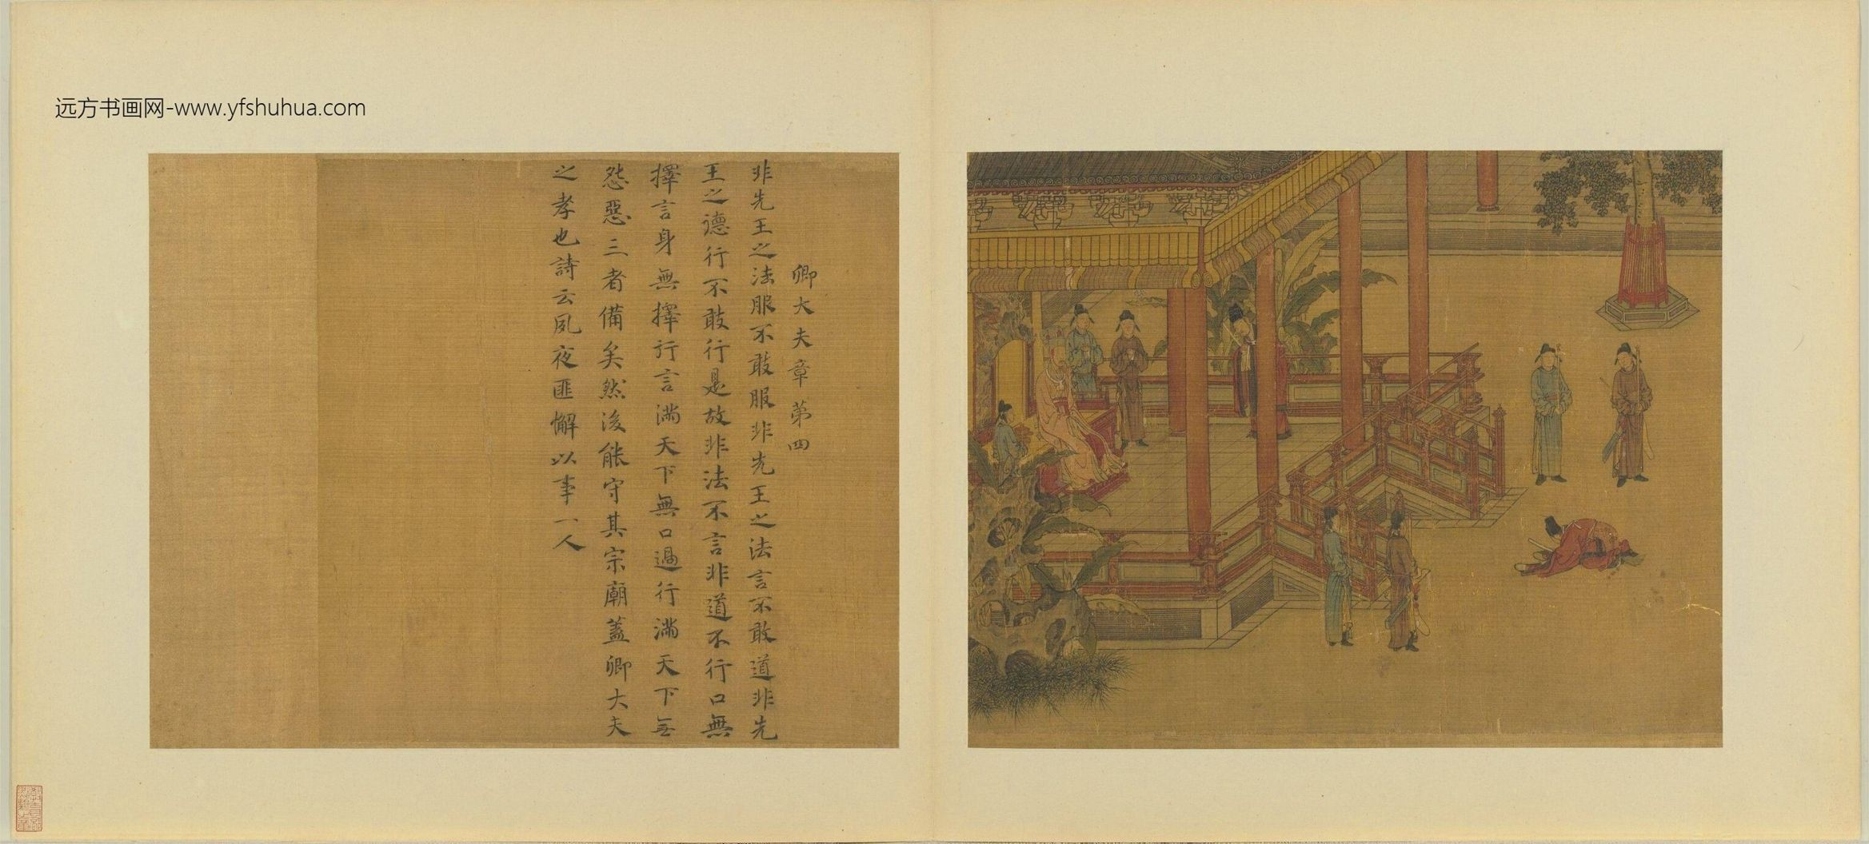 远方书画网-www.yfshuhua.com
卿大夫章第四
非先王之法服不敢服非先王之法言不敢道非先
王之德行不敢行是故非法不言非道不行口無
擇言身無擇行言滿天下無口過行滿天下無
怨惡三者備矣然後能守其宗廟蓋卿大夫
之孝也詩云夙夜匪懈以事一人